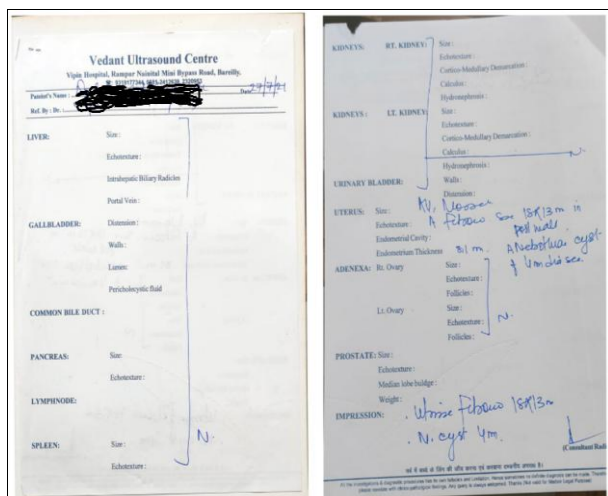 Vedant Ultrasound Centre
Vipin Hospital, Rampur Nainital Mini Bypass Road, Bareilly.
Patient's Name :
Date 29/7/21
Ref. By : Dr. :
LIVER: Size :
Echotexture :
Intrahepatic Biliary Radicles
Portal Vein :
GALLBLADDER: Distension :
Walls :
Lumen:
Pericholecystic fluid
COMMON BILE DUCT :
PANCREAS: Size:
Echotexture :
LYMPHNODE:
N.
SPLEEN: Size :
Echotexture :
KIDNEYS: RT. KIDNEY: Size :
Echotexture :
Cortico-Medullary Demarcation :
Calculus :
Hydronephrosis :
KIDNEYS : LT. KIDNEY: Size :
Echotexture :
Cortico-Medullary Demarcation :
Calculus : N.
Hydronephrosis :
URINARY BLADDER: Walls :
Distension :
UTERUS: Size :
Echotexture : A 18x13 m in
Endometrial Cavity : post wall.
Endometrium Thickness 81 m. cyst
ADENEXA: Rt. Ovary Size : 4m
Echotexture :
Follicles :
Lt. Ovary Size : N.
Echotexture :
Follicles :
PROSTATE: Size :
Echotexture :
Median lobe buldge :
Weight :
IMPRESSION: 18x13m
. N. cyst 4m.
(Consultant Radi